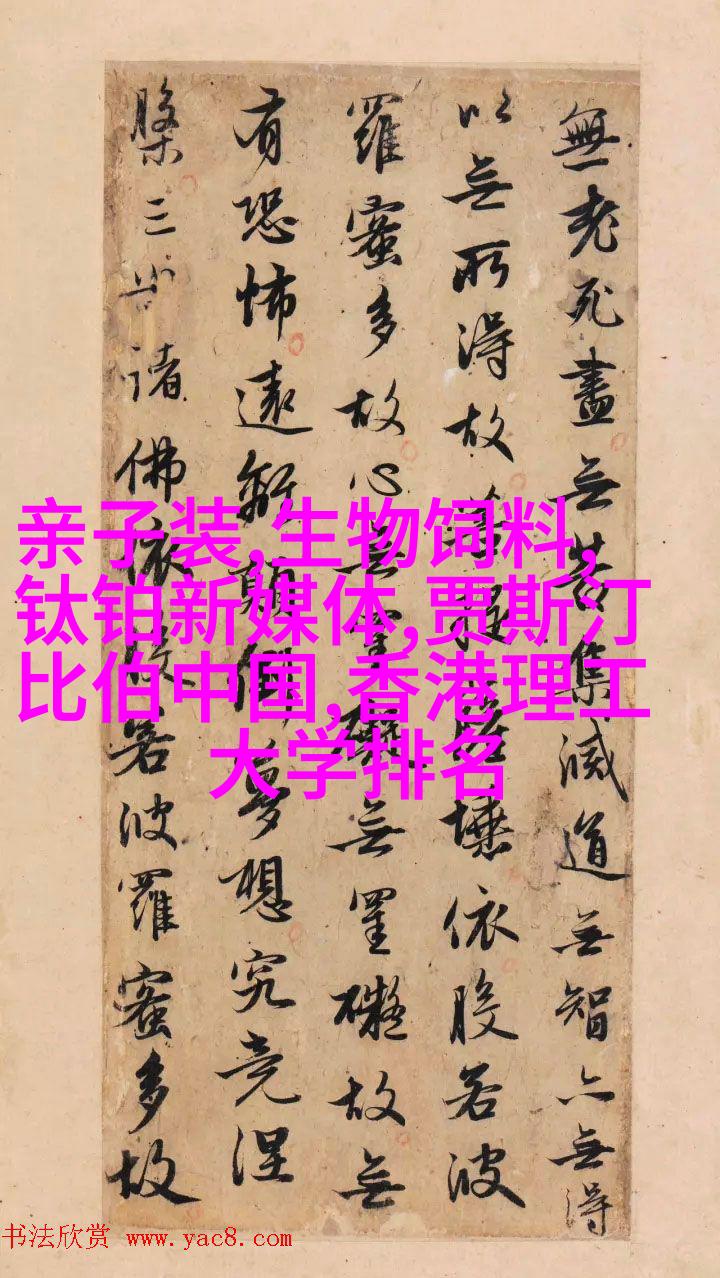 無老死盡無苦集滅道無智亦無得
以無所得故菩提薩埵依般若波
羅蜜多故心無罣礙無罣礙故無
有恐怖遠離顛倒夢想究竟涅
槃三世諸佛依般若波羅蜜多故
亲子装,生物饲料,
钛铂新媒体,贾斯汀
比伯中国,香港理工
大学排名
书法欣赏 www.yac8.com